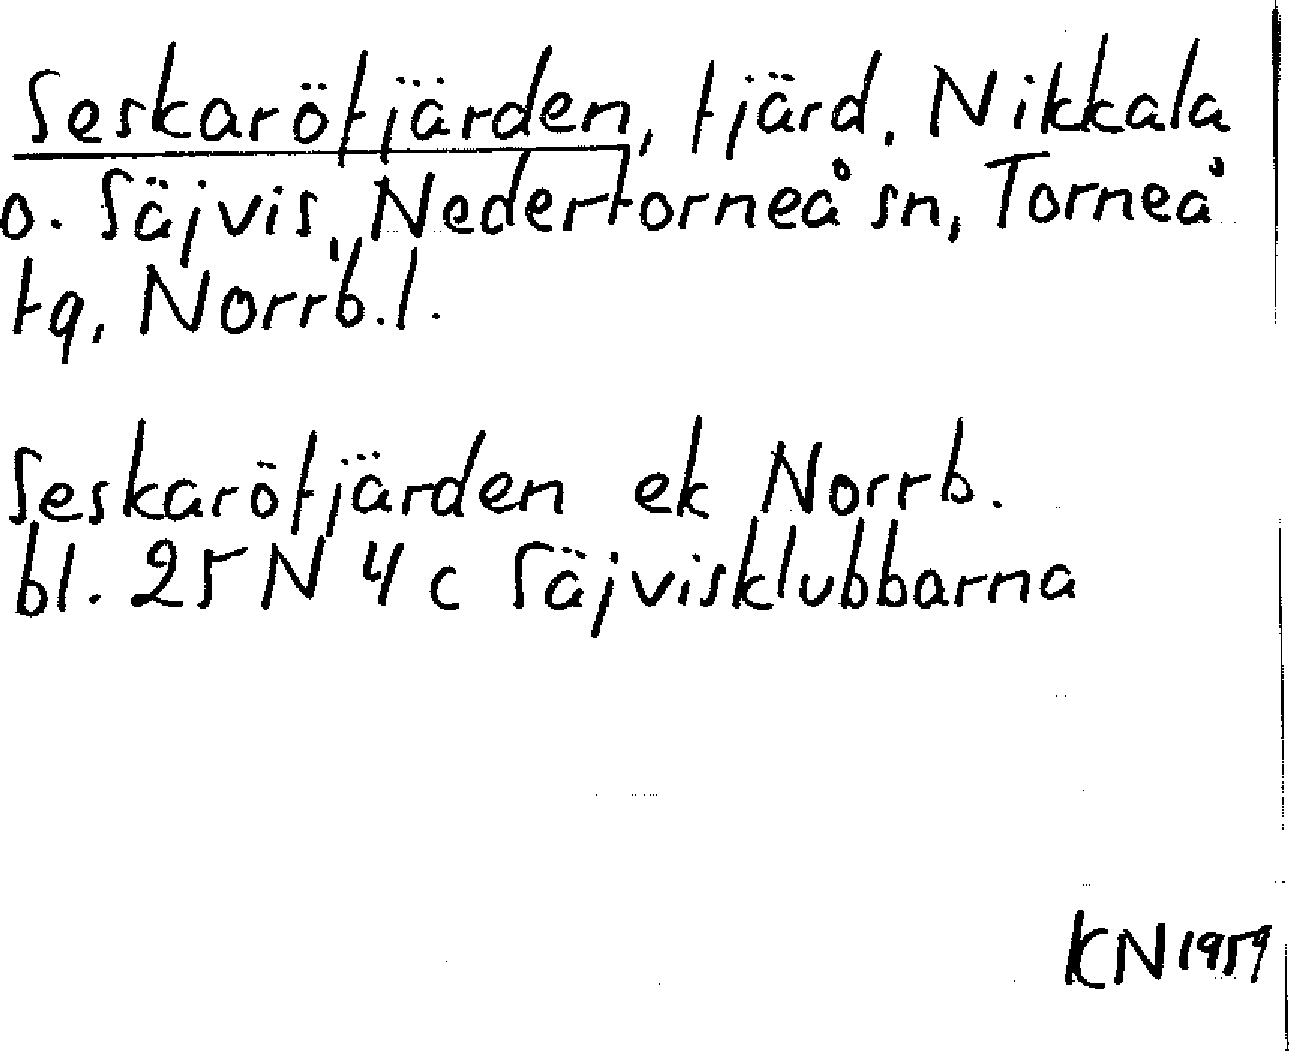 Seskaröfjärden, fjärd. Nikkala
o. Säjvis, Nedertorneå sn, Torneå
tg, Norrb.l.
Seskaröfjärden ek Norrb.
bl. 25 N 4 c Säjvisklubbarna
KN 1959